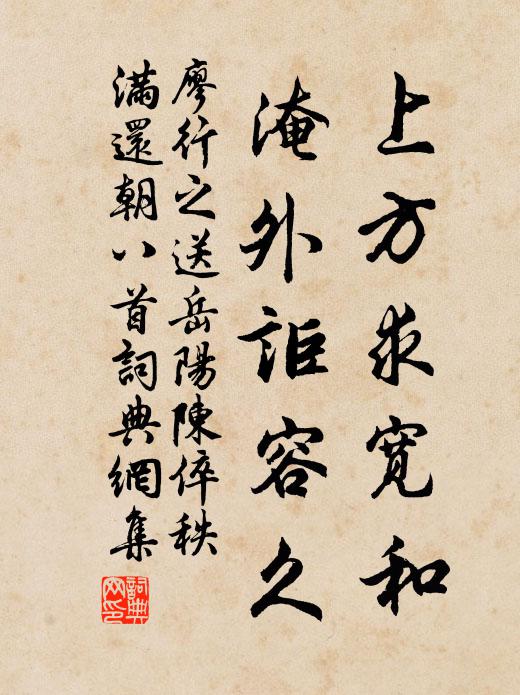 上方求寬和
淹外詎容久
廖行之送岳陽陳倅秩
滿還朝八首詞典網集
詞典
网印